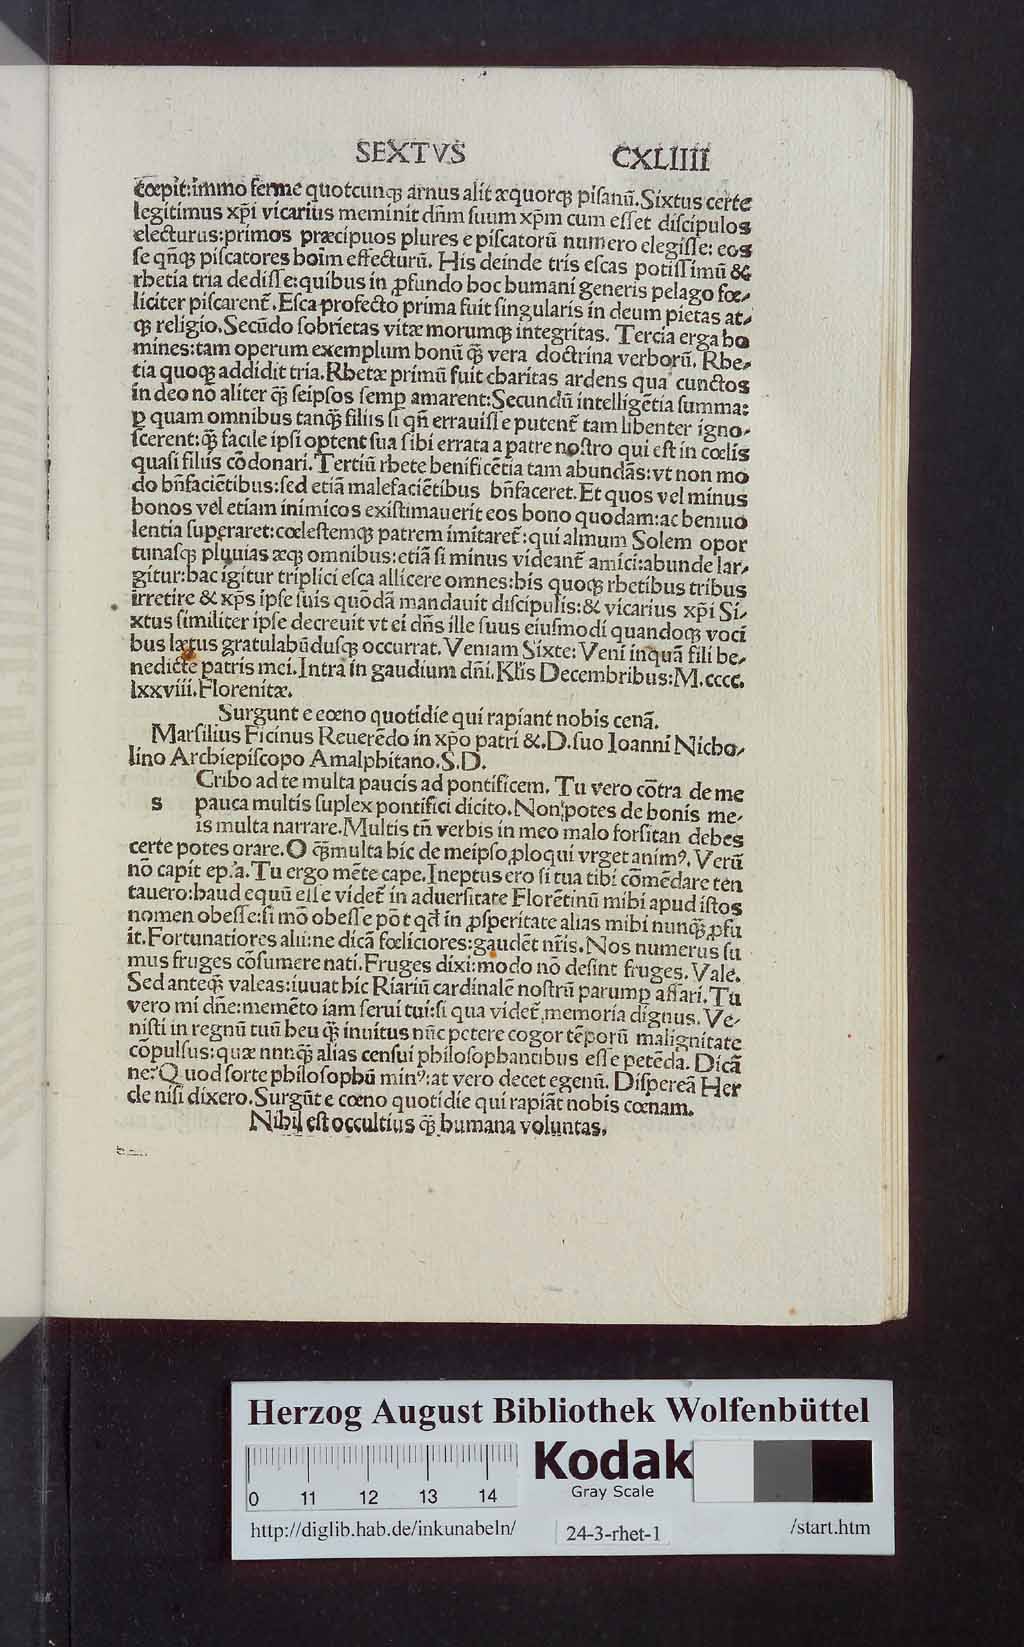 SEXTVS CXLIIII
cœpit:immo ferme quotcunqꝫ arnus alit æquorqꝫ pisanū.Sixtus certe
legitimus xp̄i vicarius meminit dn̄m suum xp̄m cum esset discipulos
electurus:primos præcipuos plures e piscatorū numero elegisse: eos
se qn̄qꝫ piscatores hoīm effecturū. His deinde tris escas potissimū &
rhetia tria dedisse:quibus in ꝓfundo hoc humani generis pelago fœ-
liciter piscarent̄.Esca profecto prima fuit singularis in deum pietas at-
qꝫ religio.Secūdo sobrietas vitæ morumqꝫ integritas. Tercia erga ho
mines:tam operum exemplum bonū qꝫ̄ vera doctrina verborū. Rhe-
tia quoqꝫ addidit tria.Rhetæ primū fuit charitas ardens qua cunctos
in deo nō aliter qꝫ̄ seipsos semꝑ amarent:Secundū intelligētia summa:
ꝑ quam omnibus tanqꝫ̄ filiis si qn̄ errauisse putent̄ tam libenter igno-
scerent:qꝫ̄ facile ipsi optent sua sibi errata a patre nostro qui est in cœlis
quasi filiis cōdonari.Tertiū rhete benificētia tam abundās:vt non mo
do bn̄faciētibus:sed etiā malefaciētibus bn̄faceret.Et quos vel minus
bonos vel etiam inimicos existimauerit eos bono quodam:ac beniuo
lentia superaret:cœlestemqꝫ patrem imitaret̄:qui almum Solem opor
tunasqꝫ pluuias æqꝫ omnibus:etiā si minus videant̄ amici:abunde lar-
gitur:hac igitur triplici esca allicere omnes:his quoqꝫ rhetibus tribus
irretire & xp̄s ipse suis quōdā mandauit discipulis:& vicarius xp̄i Si-
xtus similiter ipse decreuit vt ei dn̄s ille suus eiusmodi quandoqꝫ voci
bus lætus gratulabūdusqꝫ occurrat. Veniam Sixte: Veni inquā fili be-
nedicte patris mei.Intra in gaudium dn̄i.Kl̄is Decembribus:M.cccc.
lxxviii.Florenitæ.
Surgunt e cœno quotidie qui rapiant nobis cenā.
Marsilius Ficinus Reuerēdo in xp̄o patri &.D.suo Ioanni Nicho-
lino Archiepiscopo Amalphitano.S.D.
Cribo ad te multa paucis ad pontificem. Tu vero cōtra de me
s pauca multis suplex pontifici dicito.Non potes de bonis me-
is multa narrare.Multis tn̄ verbis in meo malo forsitan debes
certe potes orare.O qꝫ̄ multa hic de meipso ꝓloqui vrget animꝰ. Verū
nō capit ep̄.a.Tu ergo mēte cape.Ineptus ero si tua tibi cōmēdare ten
tauero:haud equū esse videt̄ in aduersitate Florētinū mihi apud istos
nomen obesse:si mō obesse pōt qd̄ in ꝓsperitate alias mihi nunqꝫ̄ ꝓfu
it.Fortunatiores alii:ne dicā fœliciores:gaudēt nr̄is.Nos numerus su
mus fruges cōsumere nati.Fruges dixi:modo nō desint fruges. Vale.
Sed anteqꝫ̄ valeas:iuuat hic Riariū cardinalē nostrū parumꝑ affari.Tu
vero mi dn̄e:memēto iam serui tui:si qua videt̄ memoria dignus. Ve-
nisti in regnū tuū heu qꝫ̄ inuitus nūc petere cogor tēporū malignitate
cōpulsus:quæ nunqꝫ̄ alias censui philosophantibus esse petēda. Dicā
ne?Quod forte philosophū minꝰ:at vero decet egenū. Dispereā Her
cle nisi dixero.Surgūt e cœno quotidie qui rapiāt nobis cœnam.
Nihil est occultius qꝫ̄ humana voluntas.
Herzog August Bibliothek Wolfenbüttel
Kodak
Gray Scale
0 11 12 13 14
http://diglib.hab.de/inkunabeln/ 24-3-rhet-1 /start.htm